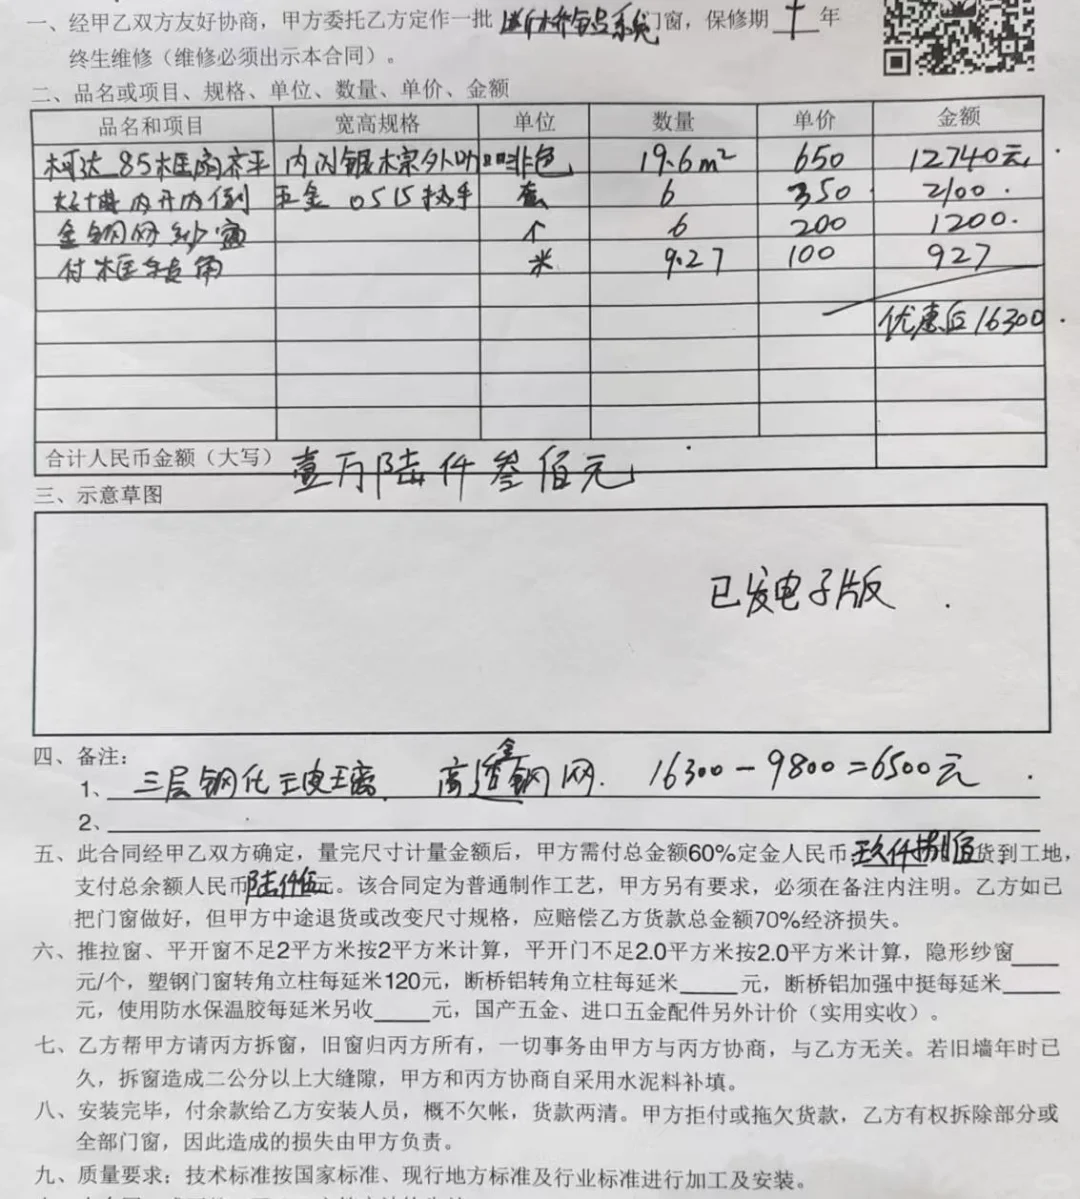 一、经甲乙双方友好协商，甲方委托乙方定作一批 断桥铝系统门窗，保修期 十 年
终生维修（维修必须出示本合同）。
二、品名或项目、规格、单位、数量、单价、金额
品名和项目 宽高规格 单位 数量 单价 金额
柯达 85框扇齐平 内闪银棕外咖啡色 19.6m² 650 12740元
内开内倒 五金 0515执手 套 6 350 2100.
金钢网纱窗 个 6 200 1200.
付框转角 米 9.27 100 927
优惠后16300
合计人民币金额（大写） 壹万陆仟叁佰元
三、示意草图
已发电子版
四、备注：
1、三层钢化玻璃 高透金钢网. 16300－9800=6500元
2、
五、此合同经甲乙双方确定，量完尺寸计量金额后，甲方需付总金额60%定金人民币玖仟捌佰货到工地，
支付总余额人民币陆仟伍元。该合同定为普通制作工艺，甲方另有要求，必须在备注内注明。乙方如已
把门窗做好，但甲方中途退货或改变尺寸规格，应赔偿乙方货款总金额70%经济损失。
六、推拉窗、平开窗不足2平方米按2平方米计算，平开门不足2.0平方米按2.0平方米计算，隐形纱窗
元/个，塑钢门窗转角立柱每延米120元，断桥铝转角立柱每延米 元，断桥铝加强中挺每延米
元，使用防水保温胶每延米另收 元，国产五金、进口五金配件另外计价（实用实收）。
七、乙方帮甲方请丙方拆窗，旧窗归丙方所有，一切事务由甲方与丙方协商，与乙方无关。若旧墙年时已
久，拆窗造成二公分以上大缝隙，甲方和丙方协商自采用水泥料补填。
八、安装完毕，付余款给乙方安装人员，概不欠帐，货款两清。甲方拒付或拖欠货款，乙方有权拆除部分或
全部门窗，因此造成的损失由甲方负责。
九、质量要求：技术标准按国家标准、现行地方标准及行业标准进行加工及安装。